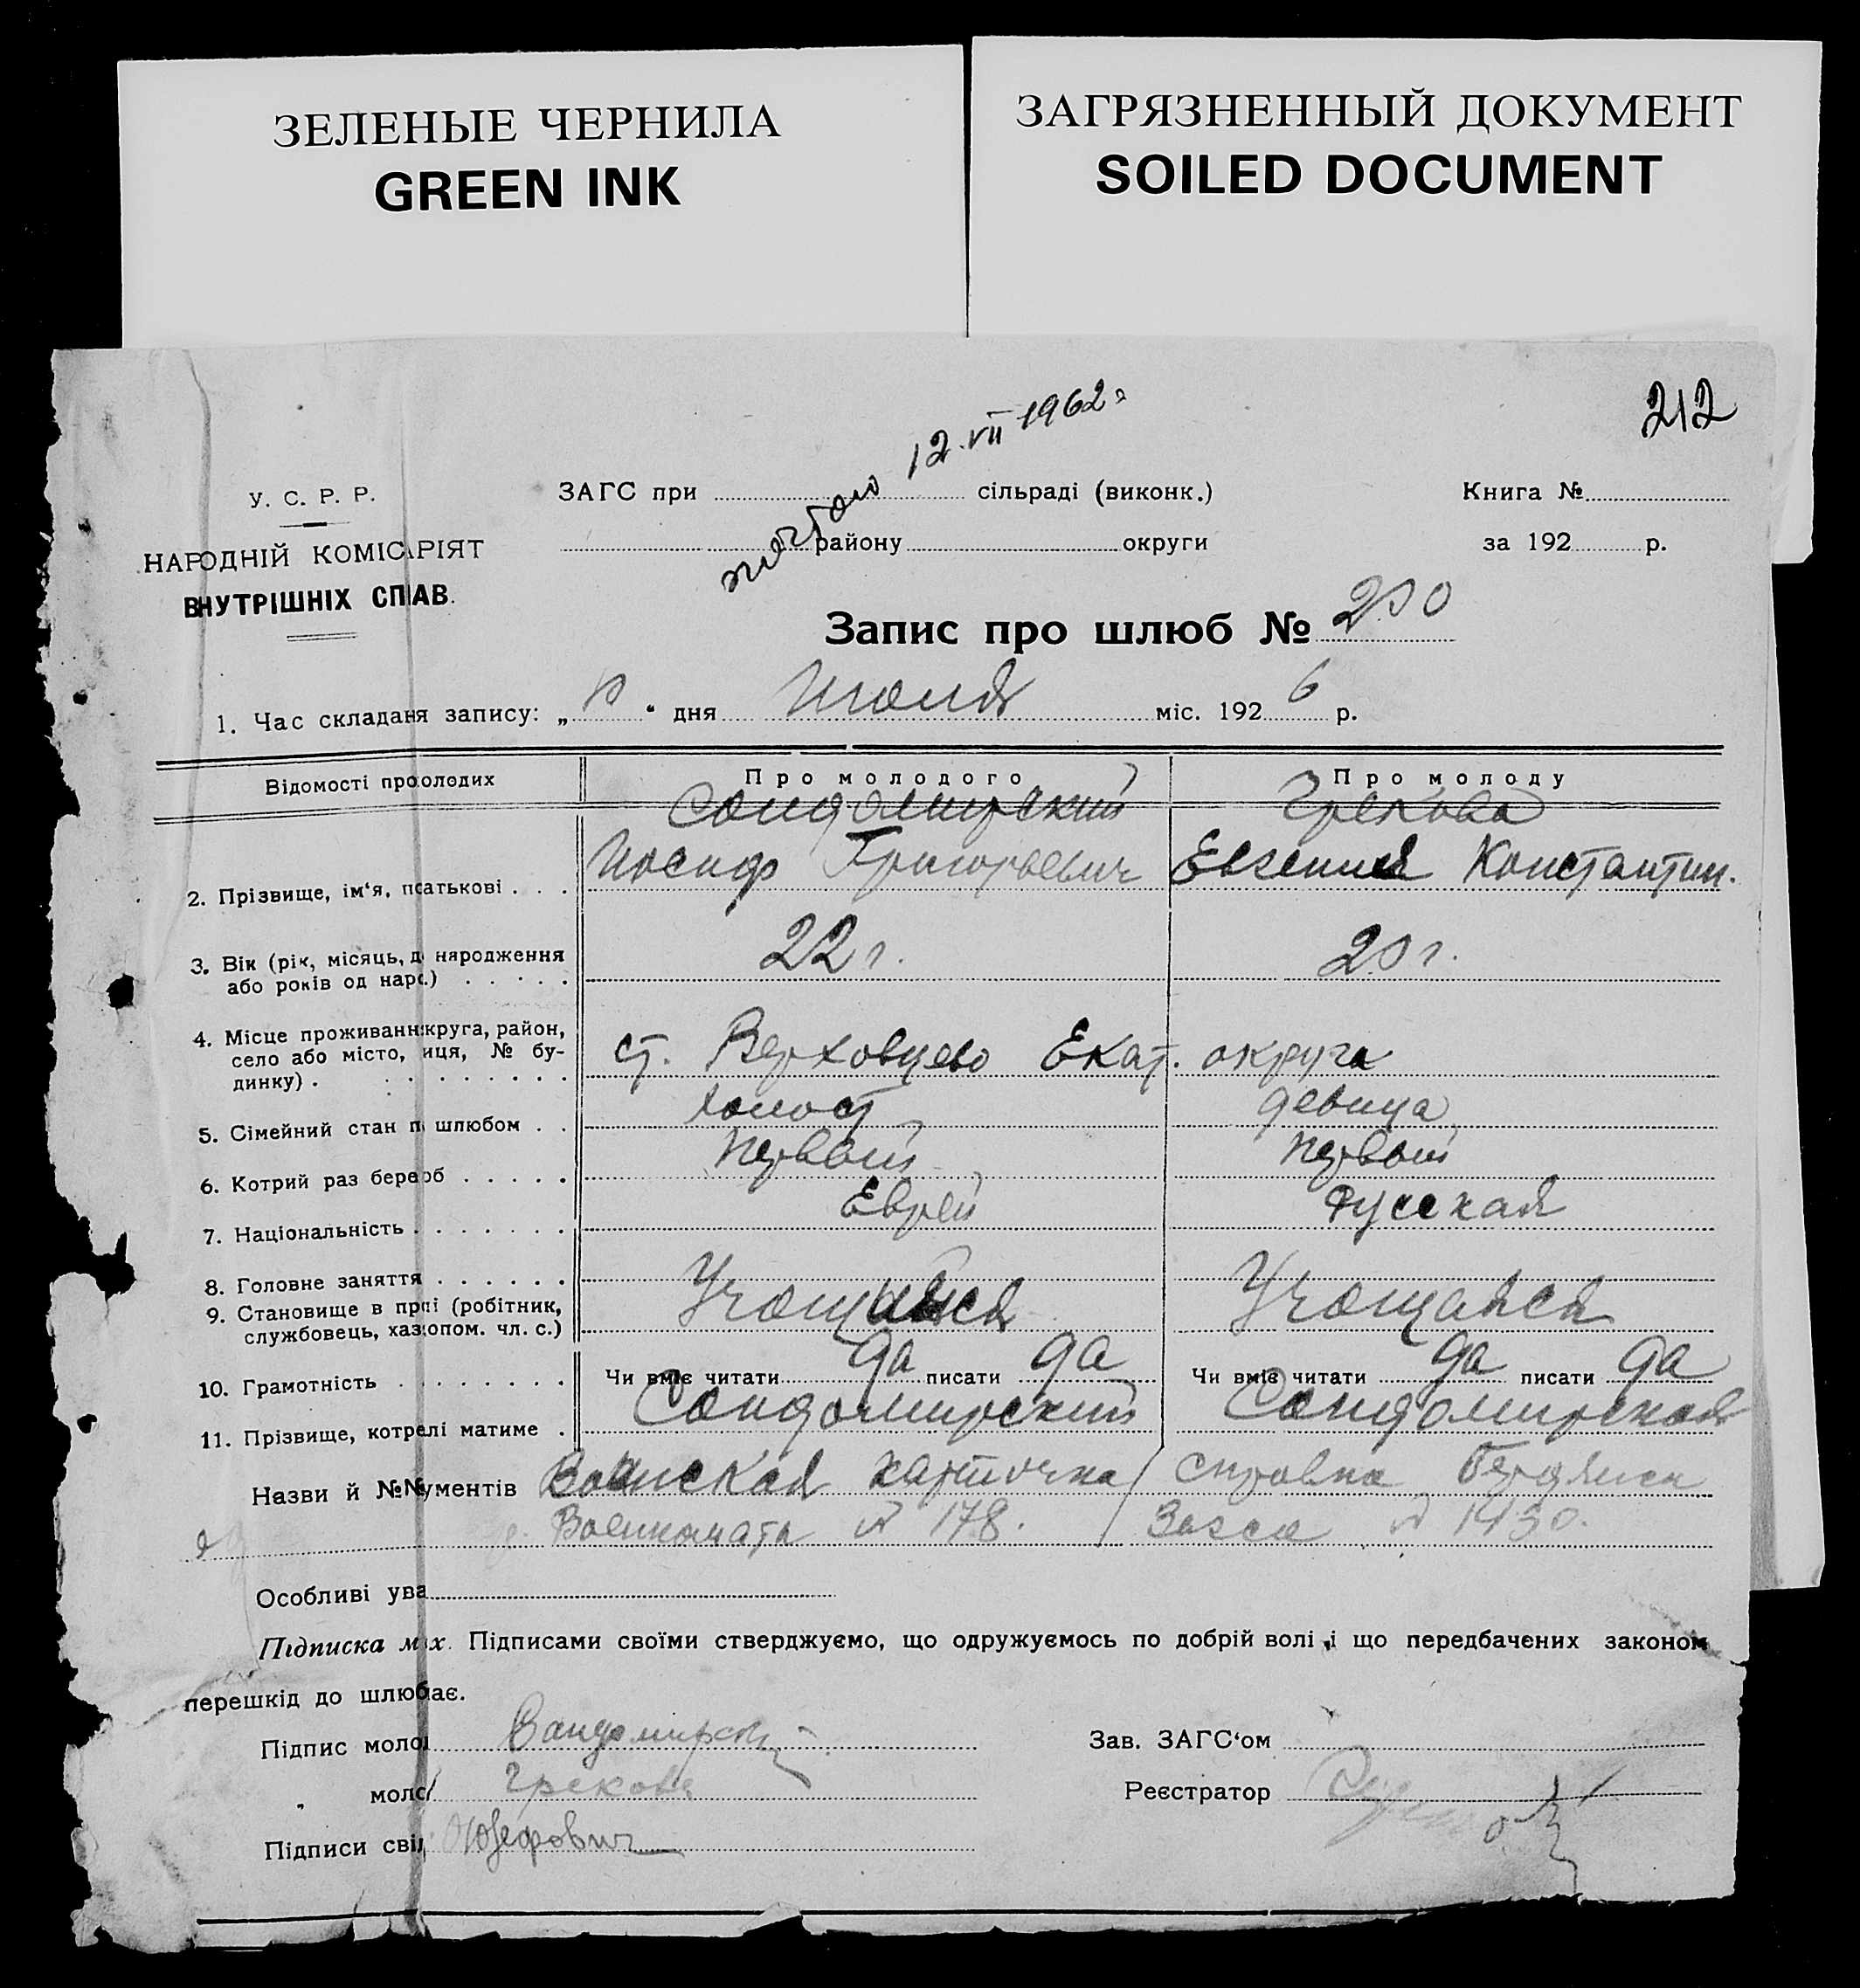 ЗЕЛЕНЫЕ ЧЕРНИЛА
GREEN INK
ЗАГРЯЗНЕННЫЙ ДОКУМЕНТ
SOILED DOCUMENT
212
12.VII 1962г
У. С. Р. Р.
НАРОДНІЙ КОМІСАРІЯТ
ВНУТРІШНІХ СПАВ.
ЗАГС при сільраді (виконк.)
району округи
Книга №
за 192 р.
Запис про шлюб № 200
1. Час складаня запису: „ “ дня Июля міс. 1926 р.
Відомості про олодих Про молодого Про молоду
Сандомирский Грекова
2. Прізвище, ім‘я, по атькові . . . Иосиф Григорьевич Евгения Константин.
3. Вік (рік, місяць, д няродження 22 г. 20 г.
або років од наро.) . . . . .
4. Місце проживанн круга, район,
село або місто, иця, № бу- ст. Верховцево Екат. округа
динку) . . . . . . . . .
5. Сімейний стан п шлюбом . . холост девица
6. Котрий раз бере об . . . . . Первый Первый
7. Національність . . . . . . . Еврей Русская
8. Головне заняття . . . . . .
9. Становище в прці (робітник, Учащийся Учащаяся
службовець, хаз опом. чл. с.)
10. Грамотність . . . . . . . . Чи вміє читати да писати да Чи вміє читати да писати да
11. Прізвище, котре лі матиме . Сандомирский Сандомирская
Назви й №№ ументів Воинская карточка / справка Бердянск
Военкомата № 178. / Загса № 1430.
Особливі ува
Підписка м х. Підписами своїми стверджуємо, що одружуємось по добрій волі, і що передбачених законом
перешкід до шлюб ає.
Підпис моло Сандомирский Зав. ЗАГС‘ом
„ моло Грекова Реєстратор
Підписи сві Юзефович